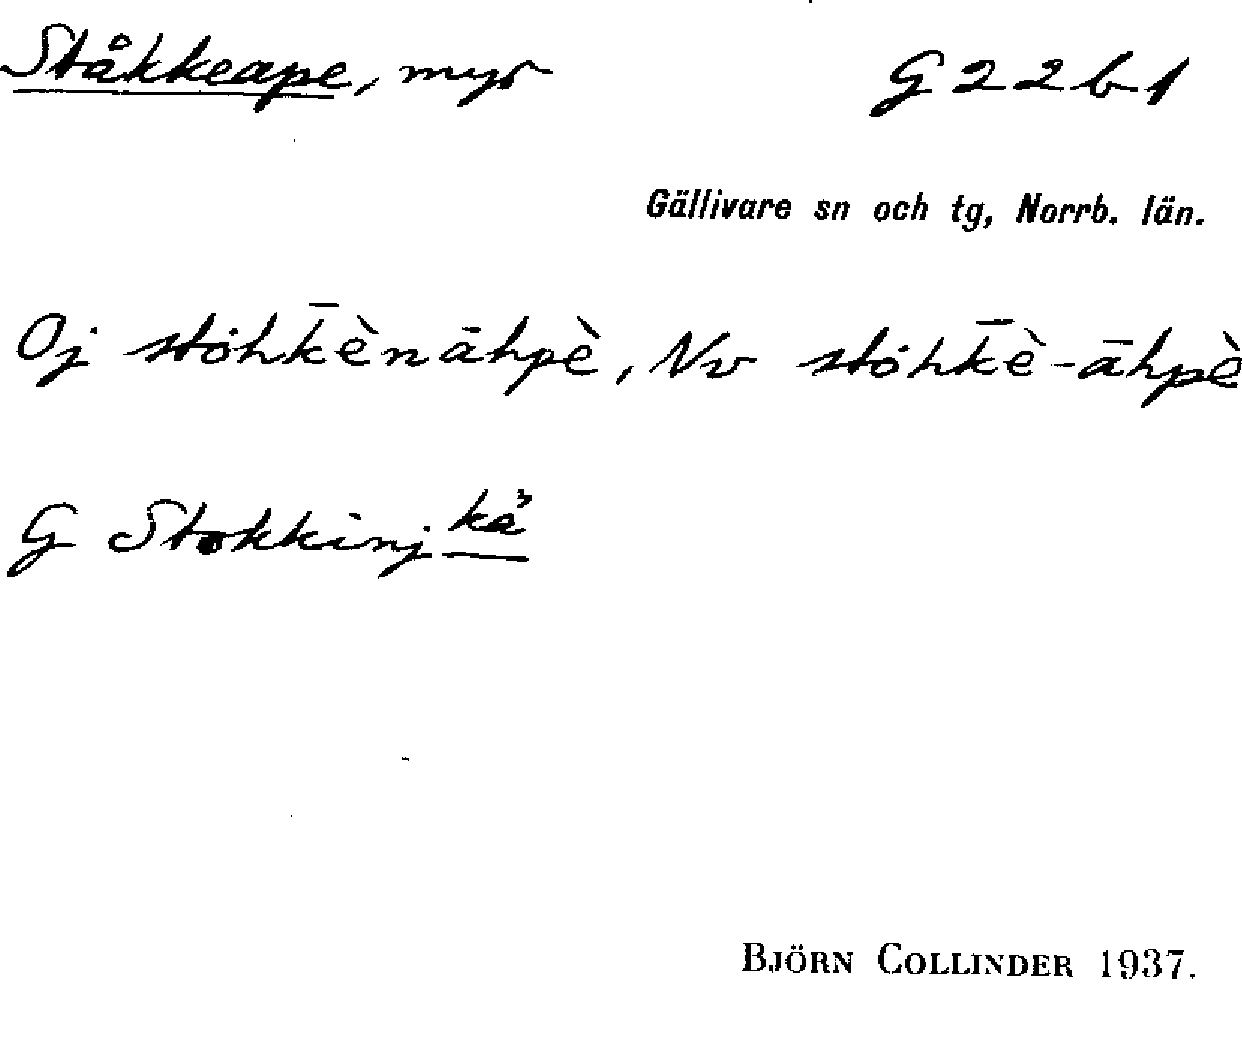 Ståkkeape, myr G22b1
Gällivare sn och tg, Norrb. län.
Oj stòhk̄ènāhpè, Nv stòhk̄è-āhpè
G Stokkinj
BJÖRN COLLINDER 1937.